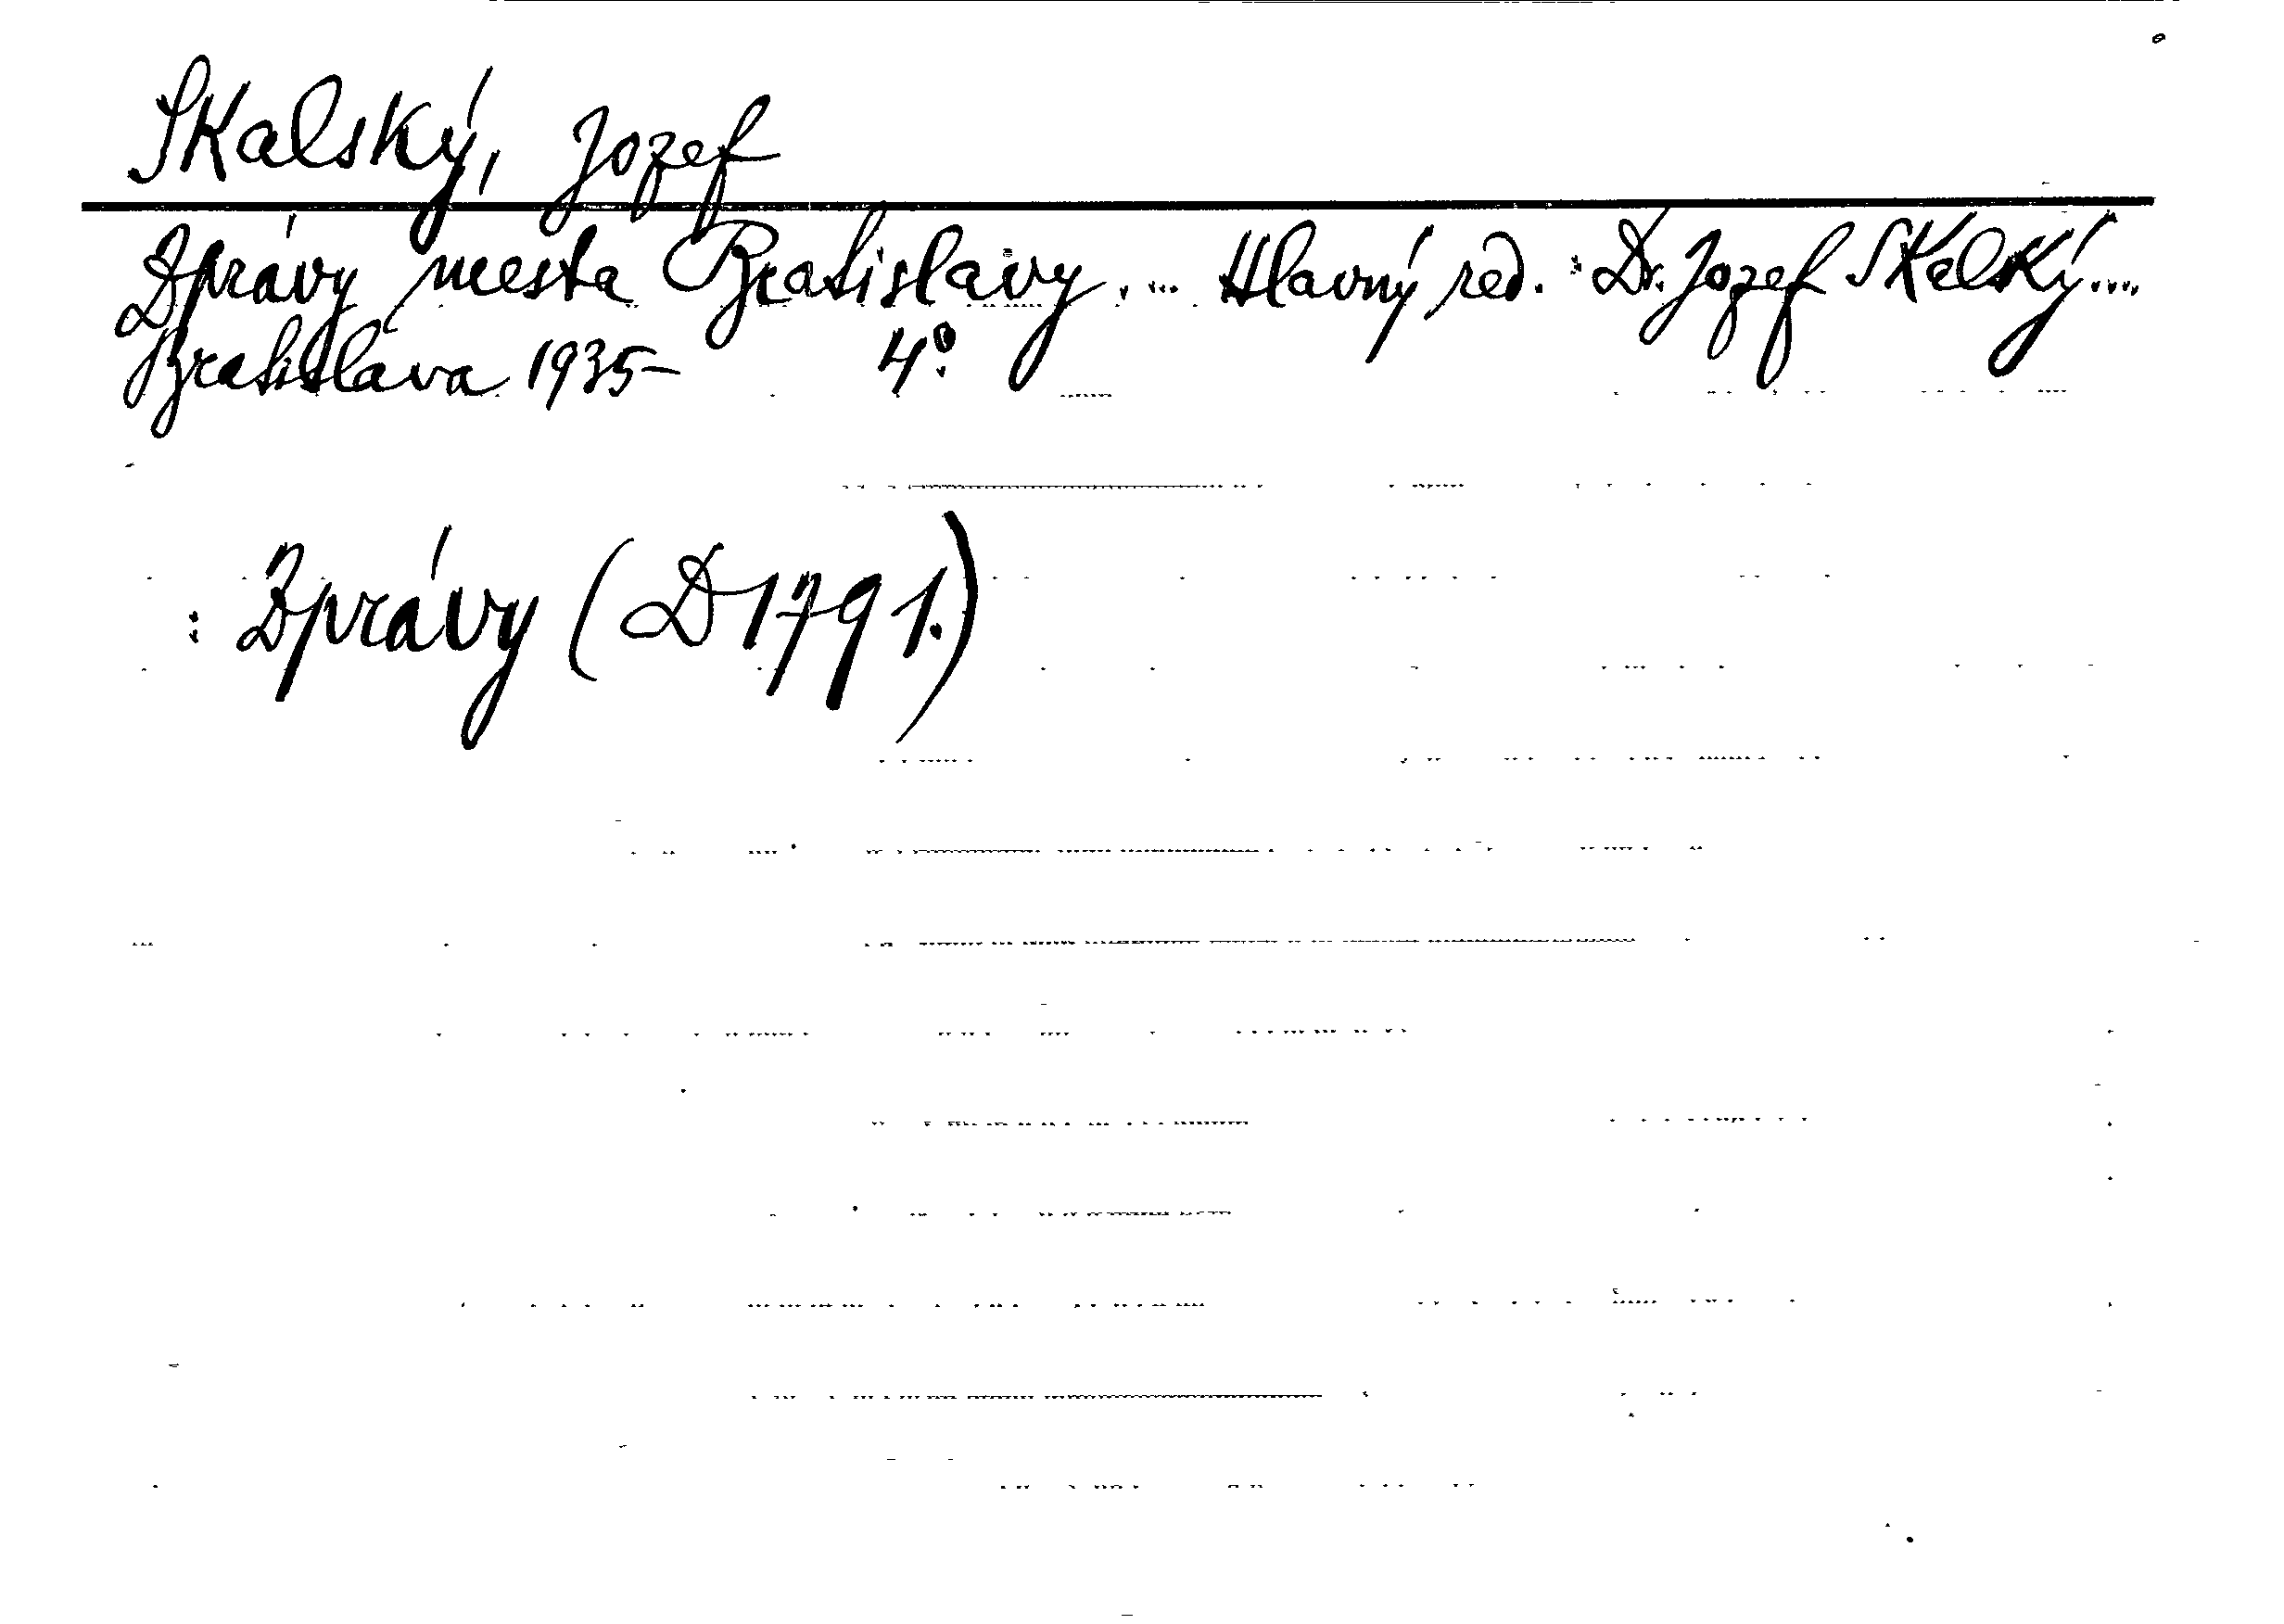 Skalský, Jozef
Zprávy mesta Bratislavy. ... Hlavný red.: Dr. Jozef Skalský...
Bratislava 1935- 4°.
: Zprávy (D 1791.)